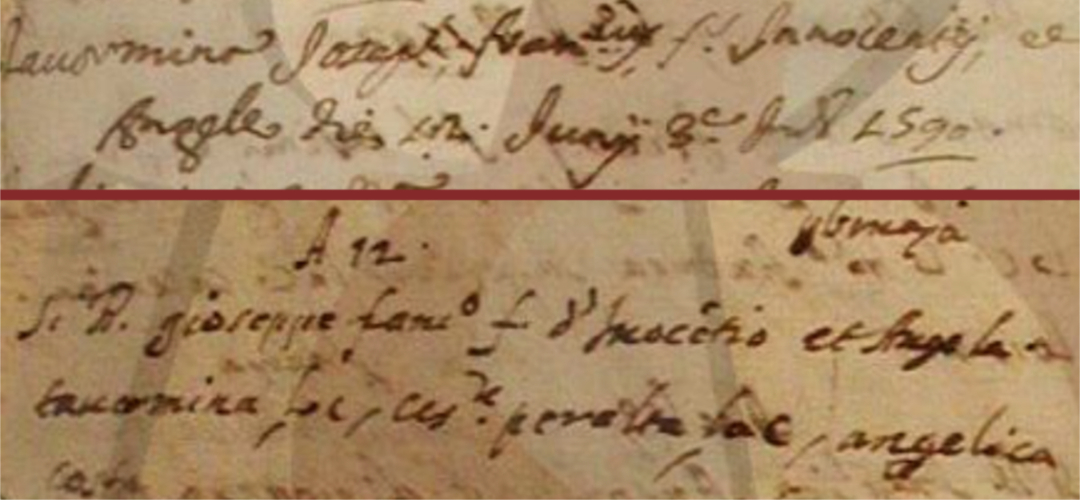 Tauormina Joseph, Fran.cus f. Innocentij, et
Angele die 12. Junij 3e Ind. 1590.
A 12.
Si B. gioseppe franc.o f. d' Inocētio et Angela
tauormina, lo c, ces.re peralta, la c, angelica